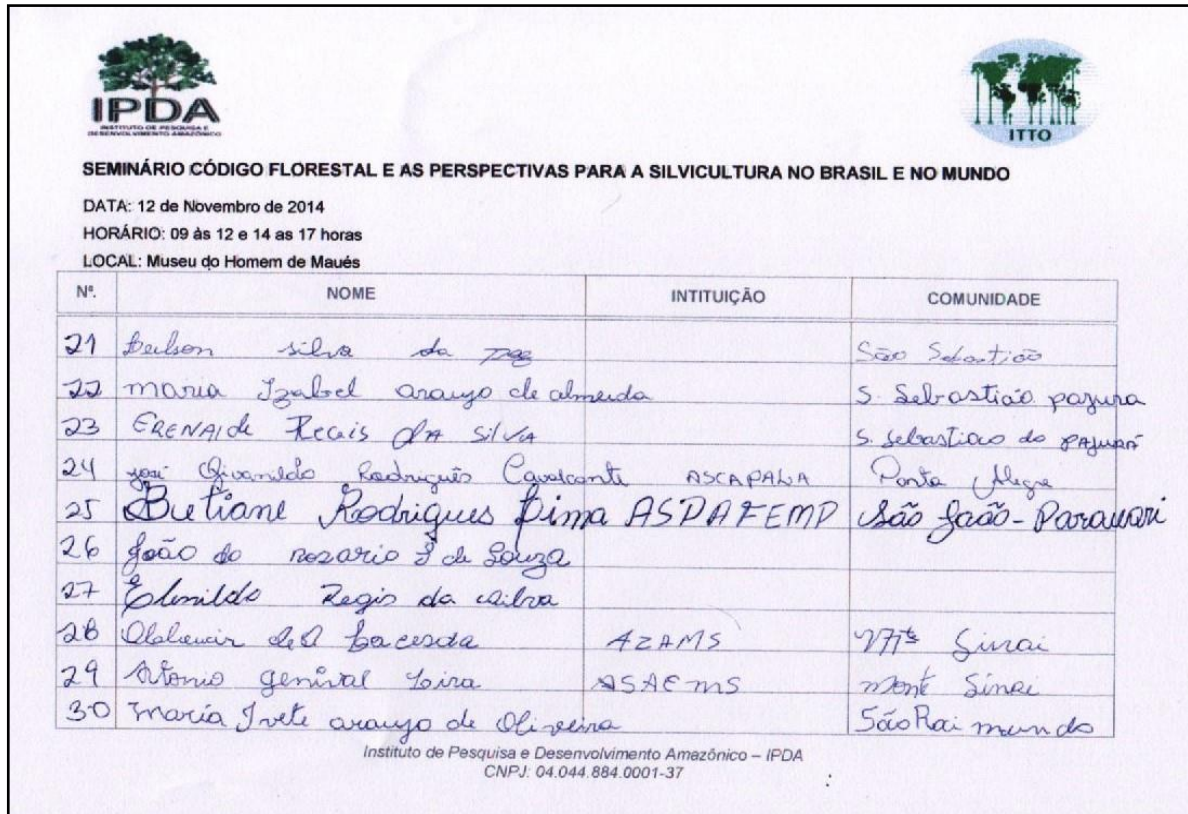 IPDA
INSTITUTO DE PESQUISA E
DESENVOLVIMENTO AMAZÔNICO
ITTO
SEMINÁRIO CÓDIGO FLORESTAL E AS PERSPECTIVAS PARA A SILVICULTURA NO BRASIL E NO MUNDO
DATA: 12 de Novembro de 2014
HORÁRIO: 09 às 12 e 14 as 17 horas
LOCAL: Museu do Homem de Maués
Nº. NOME INTITUIÇÃO COMUNIDADE
21 silva da São Sebastião
22 maria Izabel araujo de almeida S. Sebastião
23 ERENAIde Regis da SilvA S. Sebastião do
24 José Rodrigues Cavalcante Ponta Alegre
25 Rodrigues Lima ASPAFEMP São João-Parauari
26 João do rosario de Souza
27 Elenildo Regis da silva
28 AZAMS Sinai
29 genival ASAEMS monte Sinai
30 maria Ivete araujo de Oliveira São Raimundo
Instituto de Pesquisa e Desenvolvimento Amazônico – IPDA
CNPJ: 04.044.884.0001-37